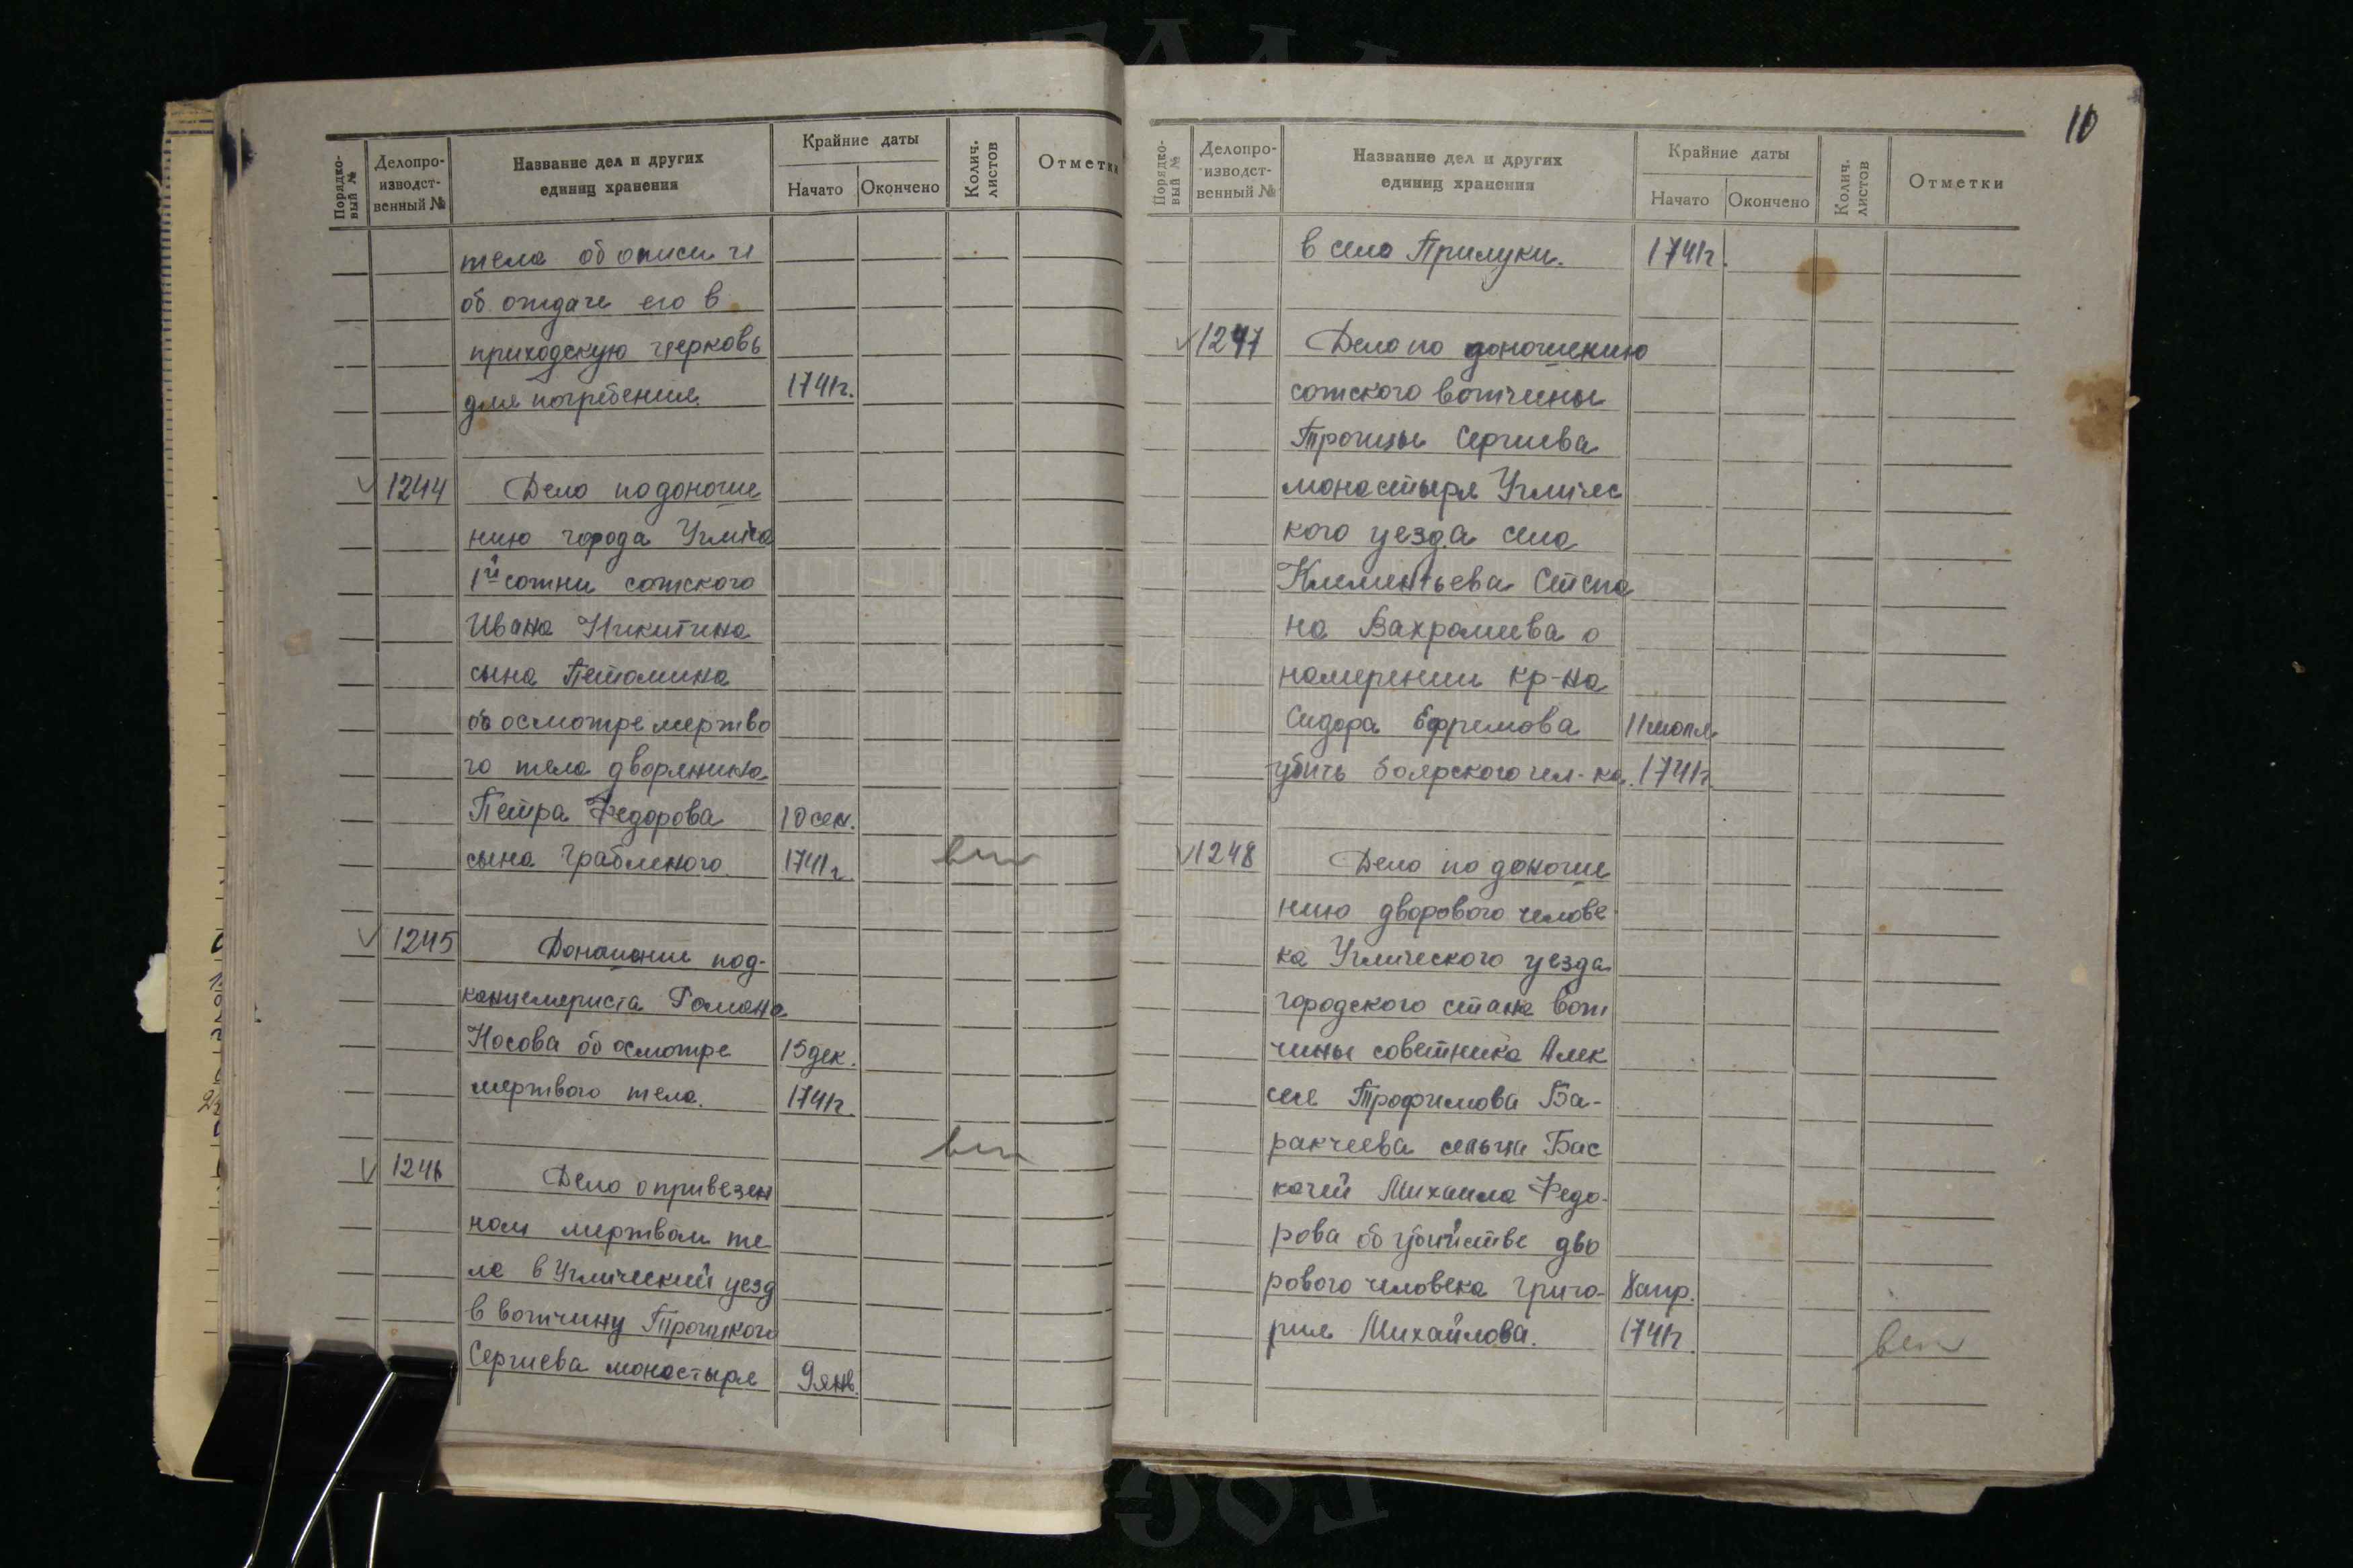 Порядковый №
Делопроизводственный №
Название дел и других единиц хранения
Крайние даты
Начато
Окончено
Колич. листов
Отметки
тела об описи и
об отдаче его в
приходскую церковь
для погребения. 1741г.
1244 Дело по доноше
нию города Углича
1й сотни сотского
Ивана Никитина
сына
об осмотре мертво
го тела дворянина
Петра Федорова 10 сен.
сына Грабленого. 1741г.
1245 Доношение под-
канцеляриста Романа
Носова об осмотре 15 дек.
мертвого тела. 1741г.
1246 Дело о привезен
ном мертвом те
ле в Углический уезд
в вотчину Троицкого
Сергиева монастыря 9 янв.
10
Порядковый №
Делопроизводственный №
Название дел и других единиц хранения
Крайние даты
Начато
Окончено
Колич. листов
Отметки
в село Прилуки. 1741г.
1247 Дело по доношению
сотского вотчины
Троицы Сергиева
монастыря Угличес
кого уезда села
Климентьева Степа
на Вахрамеева о
намерении кр-на
Сидора Ефремова 11 июля
убить боярского чел-ка. 1741г.
1248 Дело по доноше
нию дворового челове
ка Углического уезда
городского стана вот
чины советника Алек
сея Трофимова Ба-
ракчеева сельца Бас
качей Михаила Федо-
рова об убийстве дво
рового человека Григо- 8 апр.
рия Михайлова. 1741г.